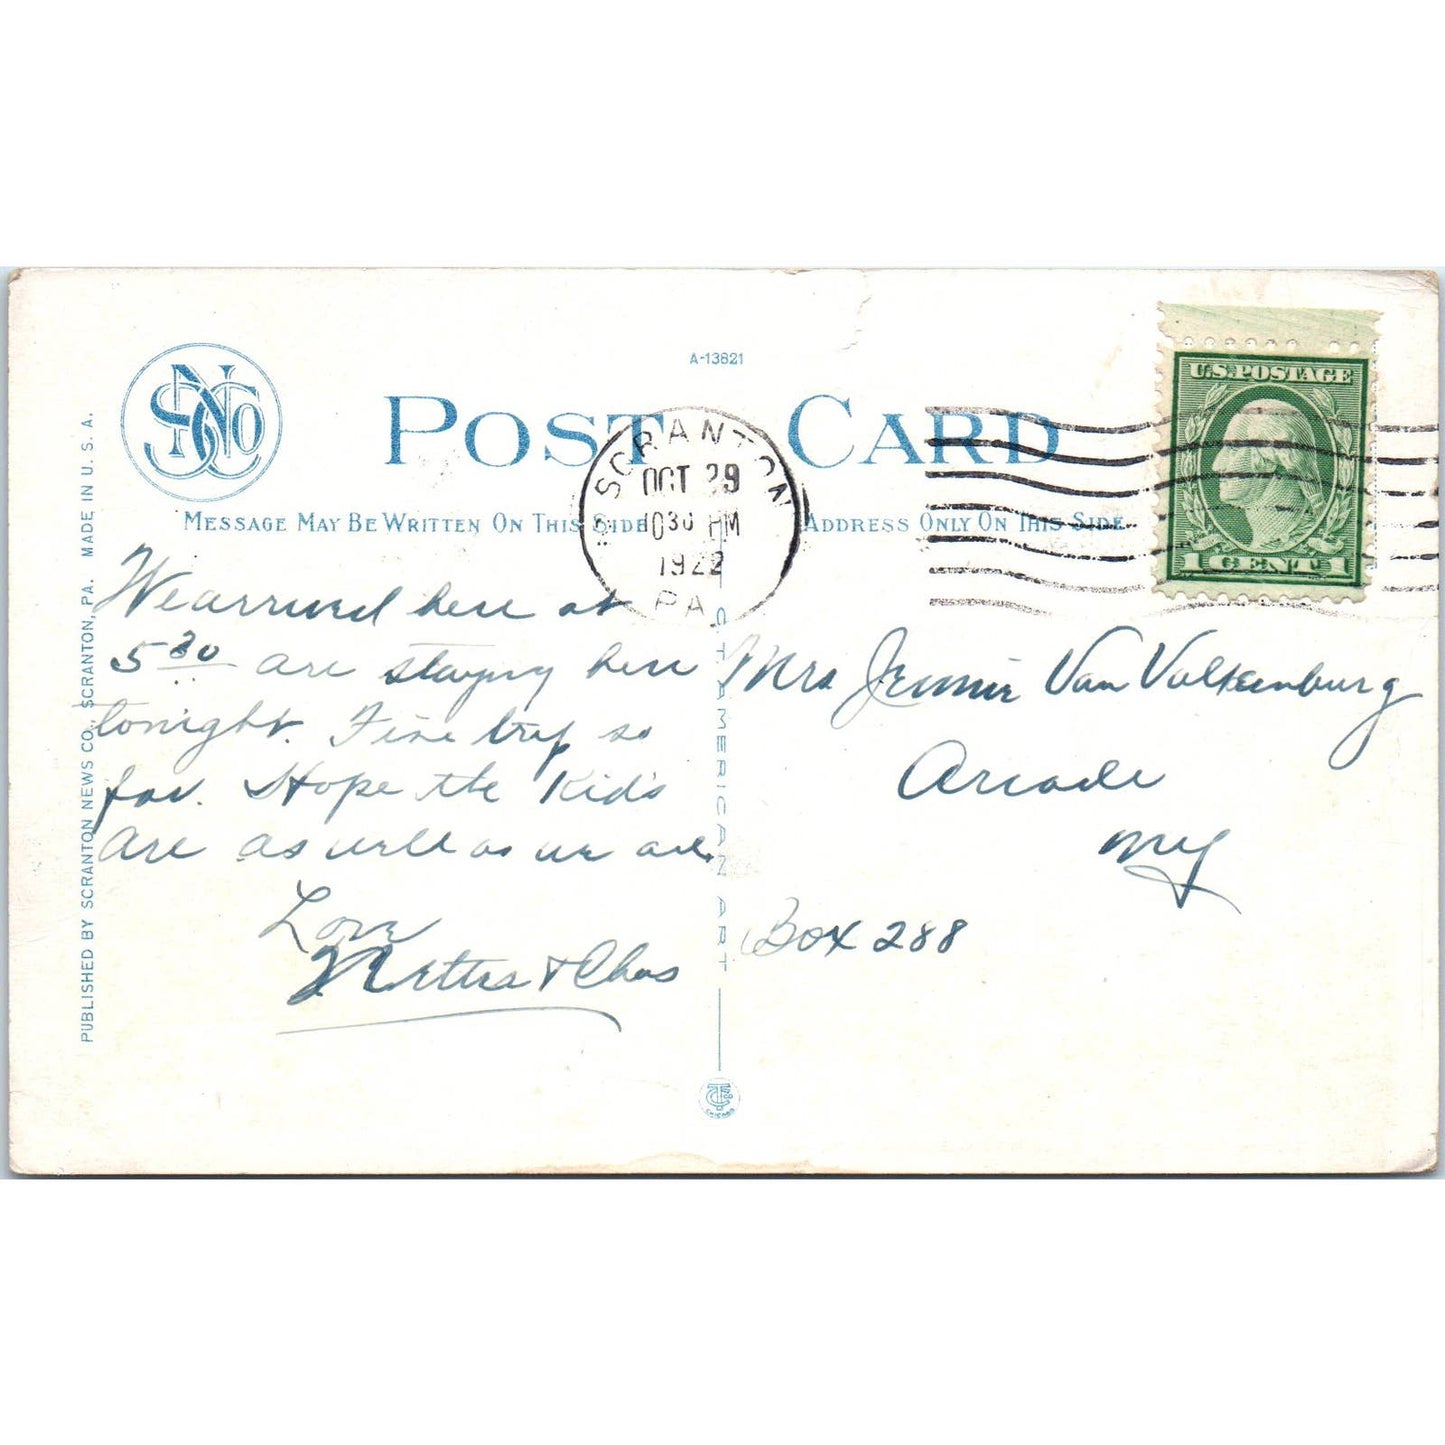 A-13821
POST CARD
MESSAGE MAY BE WRITTEN ON THIS SIDE
ADDRESS ONLY ON THIS SIDE
SCRANTON
OCT 29
1030 PM
1922
PA
U.S. POSTAGE
1 CENT 1
We arrived here at
5 30 are staying here
tonight. Fine trip so
far. Hope the Kid's
are as well as we are.
Love
Netta & Chas
Mrs Jennie Van Valkenburg
Arcade
NY
Box 288
PUBLISHED BY SCRANTON NEWS CO., SCRANTON, PA. MADE IN U. S. A.
C. T. AMERICAN ART
CHICAGO